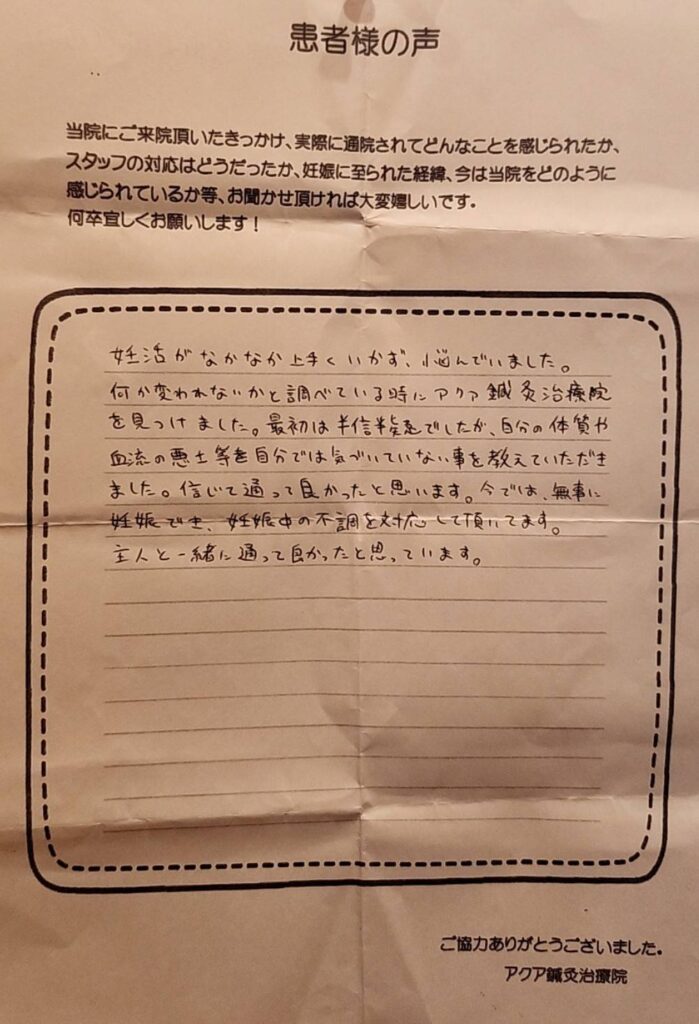 患者様の声
当院にご来院頂いたきっかけ、実際に通院されてどんなことを感じられたか、
スタッフの対応はどうだったか、妊娠に至られた経緯、今は当院をどのように
感じられているか等、お聞かせ頂ければ大変嬉しいです。
何卒宜しくお願いします！
妊活がなかなか上手くいかず、悩んでいました。
何か変われないかと調べている時にアクア鍼灸治療院
を見つけました。最初は半信半疑でしたが、自分の体質や
血流の悪土等を自分では気づいていない事を教えていただき
ました。信じて通って良かったと思います。今では、無事に
妊娠でき、妊娠中の不調を対応して頂いてます。
主人と一緒に通って良かったと思っています。
ご協力ありがとうございました。
アクア鍼灸治療院